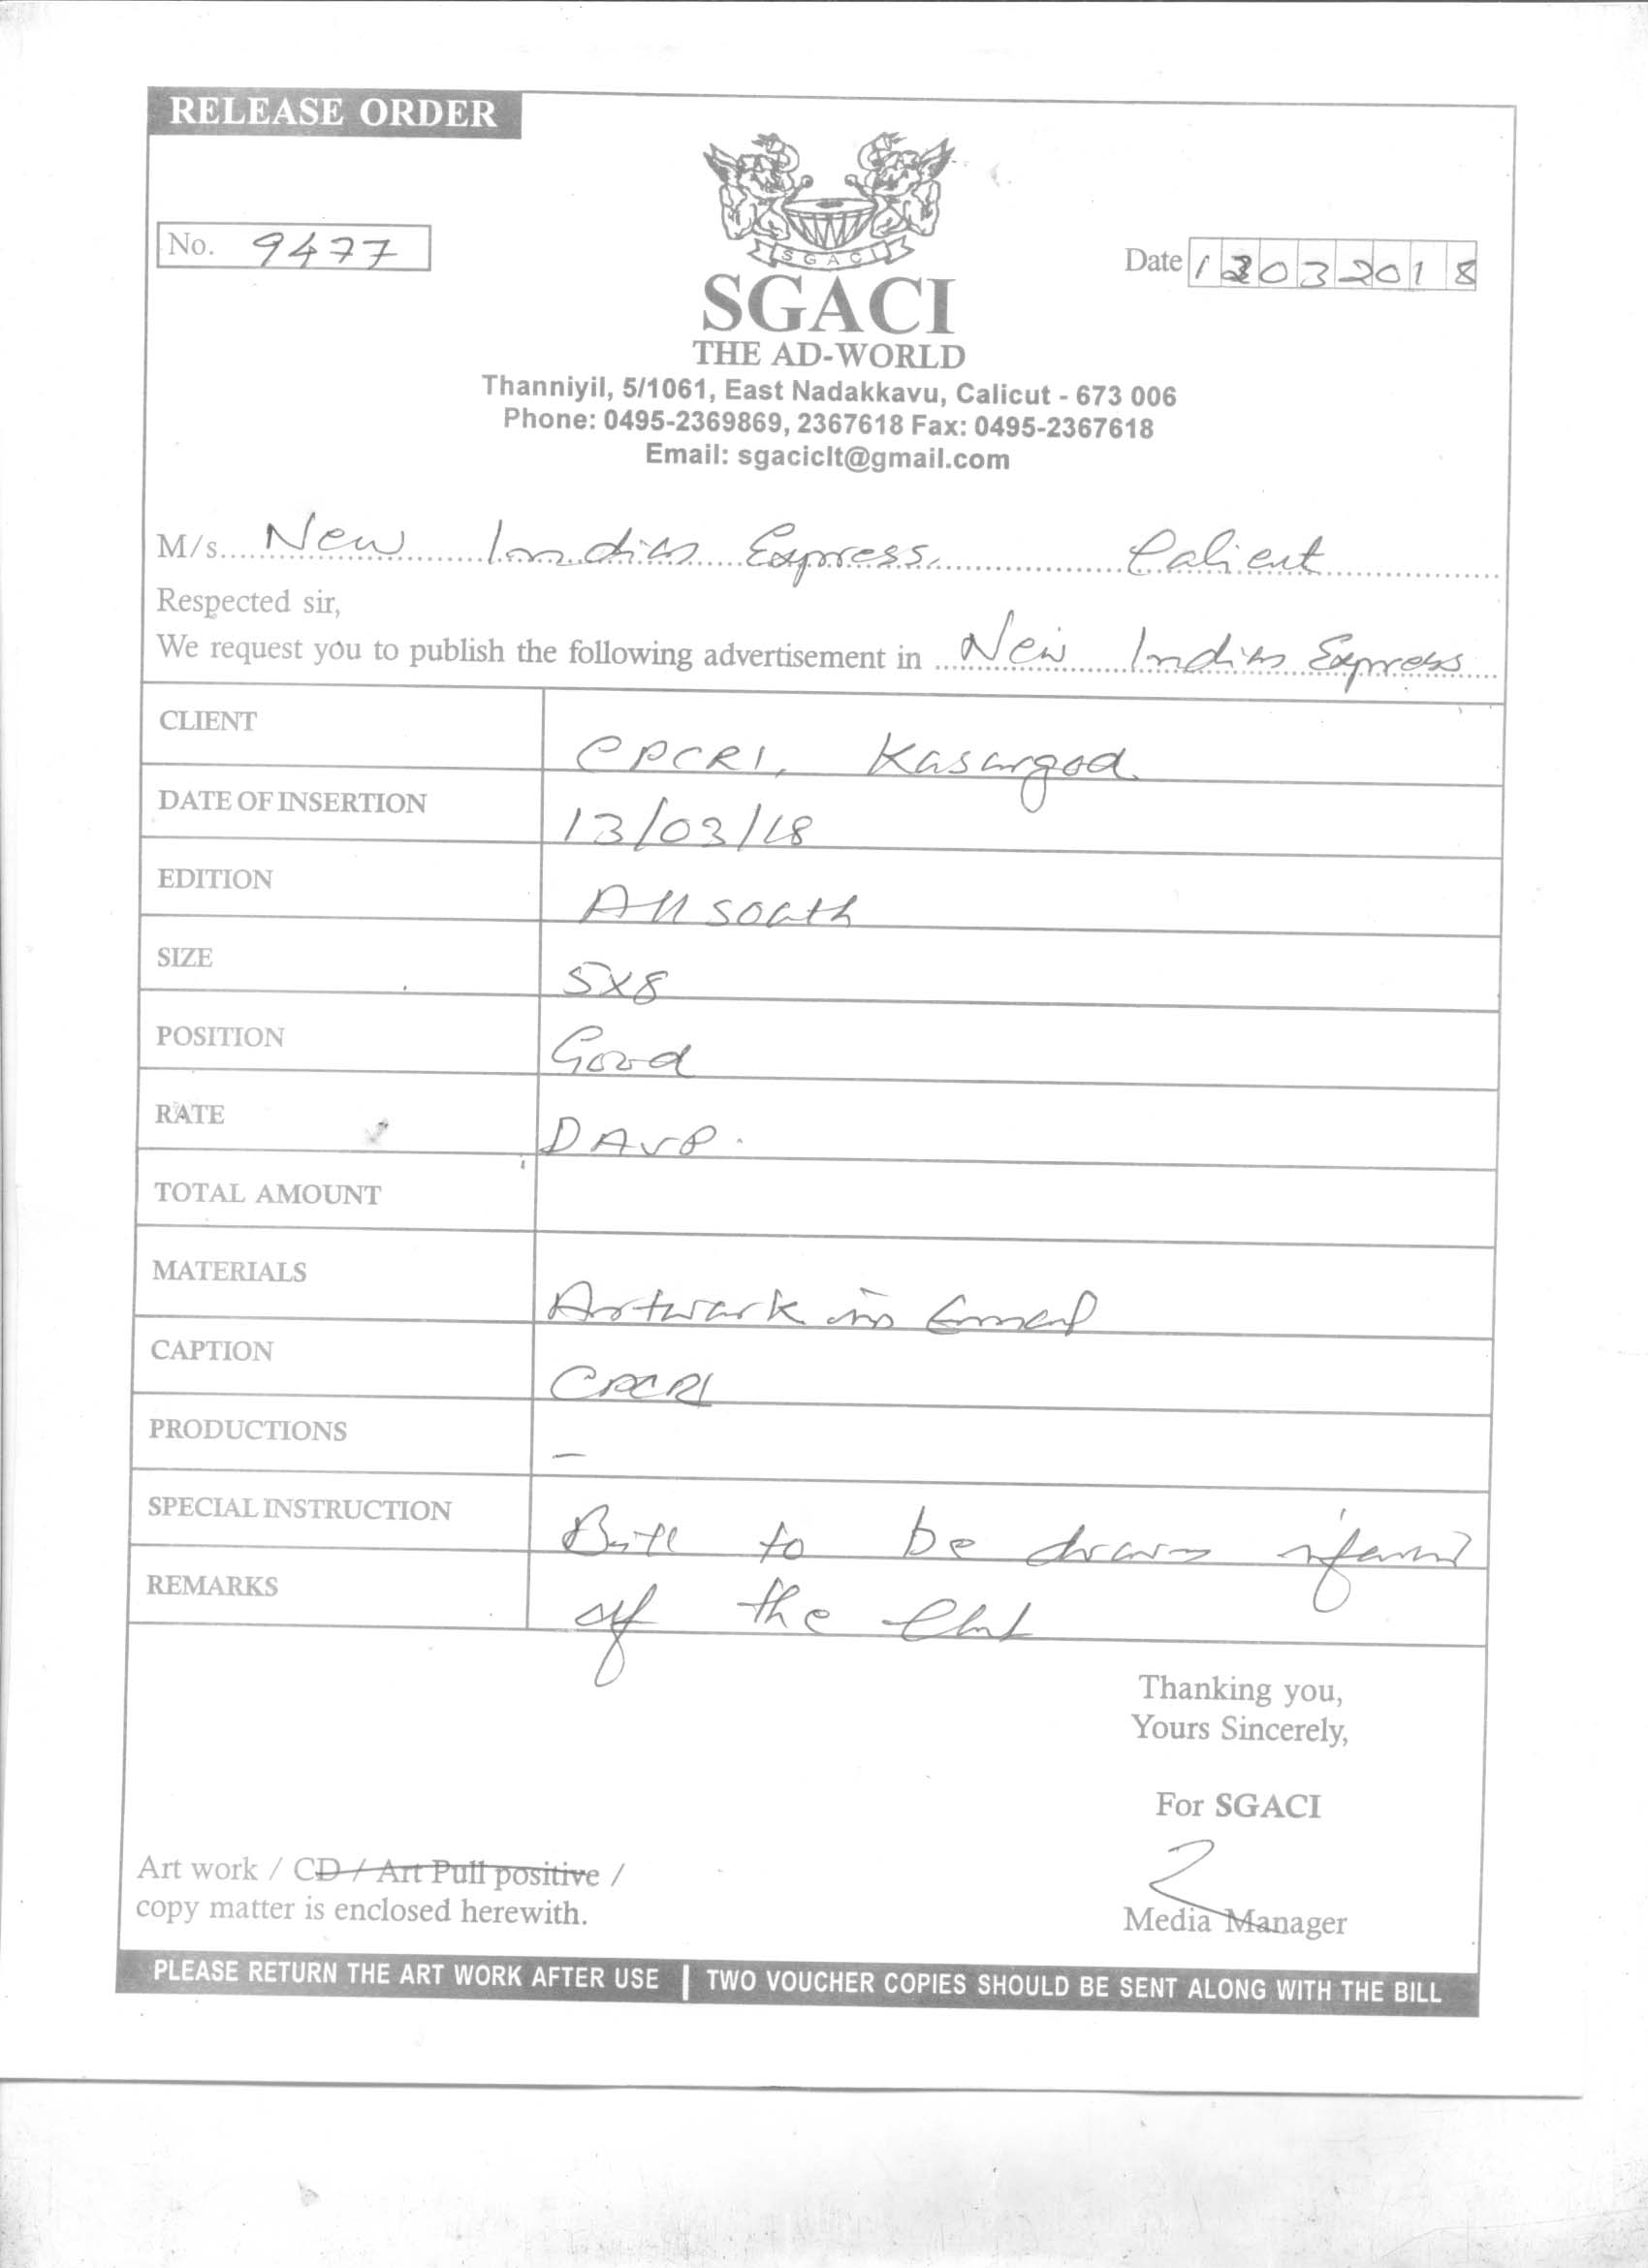 RELEASE ORDER
No. 9477
SGACI
Date 2018
SGACI
THE AD-WORLD
Thanniyil, 5/1061, East Nadakkavu, Calicut - 673 006
Phone: 0495-2369869, 2367618 Fax: 0495-2367618
Email: sgaciclt@gmail.com
M/s. New Indian Express Calicut
Respected sir,
We request you to publish the following advertisement in New Indian Express
CLIENT CPCRI, Kasargod
DATE OF INSERTION 13/03/18
EDITION All South
SIZE 5X8
POSITION Good
RATE DAVP.
TOTAL AMOUNT
MATERIALS Artwork in Email
CAPTION CPCRI
PRODUCTIONS -
SPECIAL INSTRUCTION Bill to be drawn
REMARKS of the
Thanking you,
Yours Sincerely,
For SGACI
Art work / CD / Art Pull positive /
copy matter is enclosed herewith.
Media Manager
PLEASE RETURN THE ART WORK AFTER USE | TWO VOUCHER COPIES SHOULD BE SENT ALONG WITH THE BILL